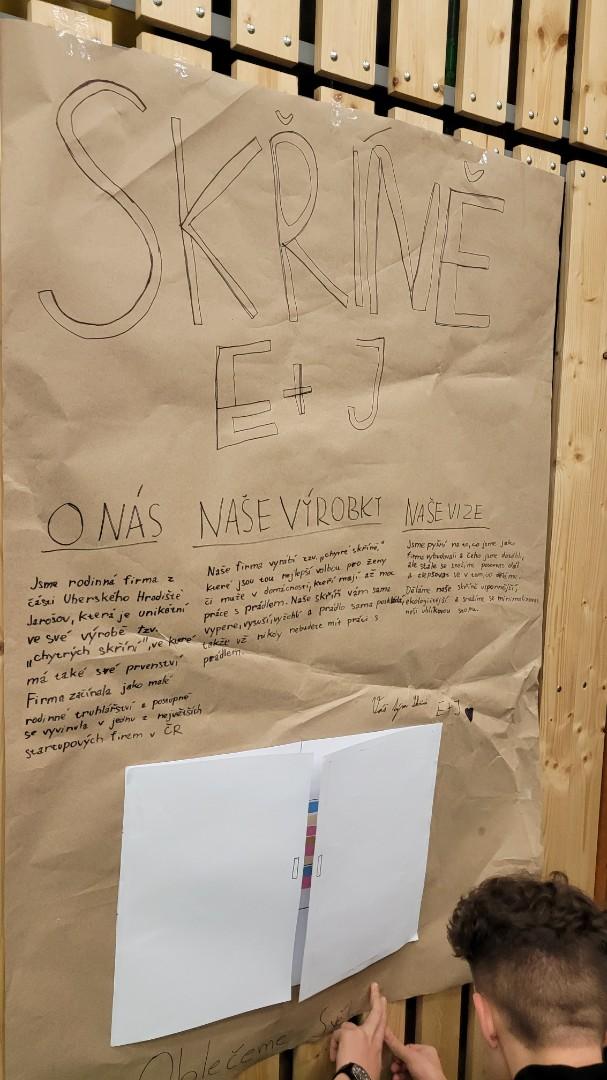 SKŘÍNĚ
E+J
O NÁS
Jsme rodinná firma z
části Uherského Hradiště
Jarošov, která je unikátní
ve své výrobě tzv.
„chytrých skříní", ve které
má také své prvenství
Firma začínala jako malé
rodinné truhlářství a postupně
se vyvinula v jednu z největších
startupových firem v ČR
NAŠE VÝROBKY
Naše firma vyrábí tzv. „chytré skříně,"
které jsou tou nejlepší volbou pro ženy
či muže v domácnosti, kteří mají až moc
práce s prádlem. Naše skříň vám sama
vypere, vysuší, vyžehlí a prádlo sama poskládá,
takže už nikdy nebudete mít práci s
prádlem.
NAŠE VIZE
Jsme pyšní na to, co jsme jako
firma vybudovali a čeho jsme dosáhli,
ale stále se snažíme posouvat dál
a zlepšovat se v tom, co děláme.
Děláme naše skříně úspornější,
ekologičtější a snažíme se minimalizovat
naši uhlíkovou stopu.
Váš tým E+J
Oblečeme